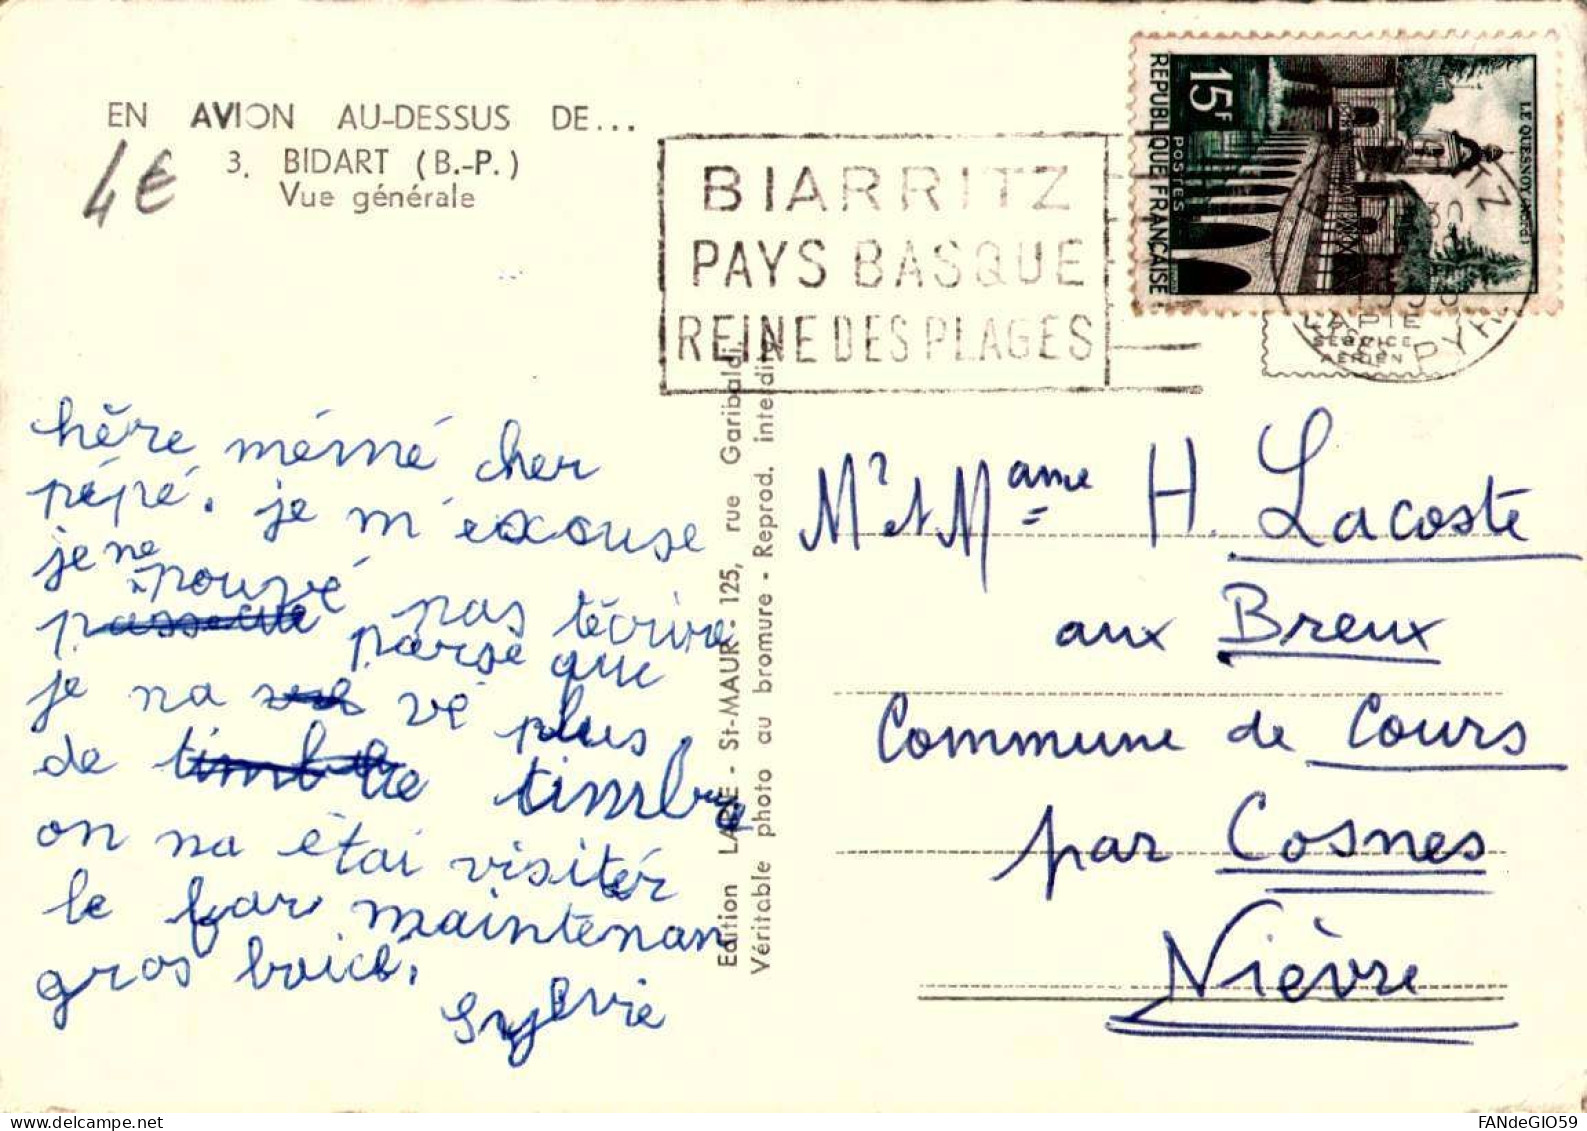 EN AVION AU-DESSUS DE...
3. BIDART (B.-P.)
Vue générale
4€
BIARRITZ
PAYS BASQUE
REINE DES PLAGES
15F
POSTES
REPUBLIQUE FRANÇAISE
LE QUESNOY
LAPIE
SERVICE
AERIEN
hère mémé cher
pépé. je m'excuse
je ne
pouvé pas técrire
parse que
je na vé plus
de timbre
on na étai visitér
le far maintenan
gros boicé.
Sylvie
Edition LAPIE - St-MAUR - 125, rue Garibaldi.
Véritable photo au bromure - Reprod. interdite
Mr et Mame H. Lacoste
aux Breux
Commune de Cours
par Cosnes
Nièvre
FANdeGIO59